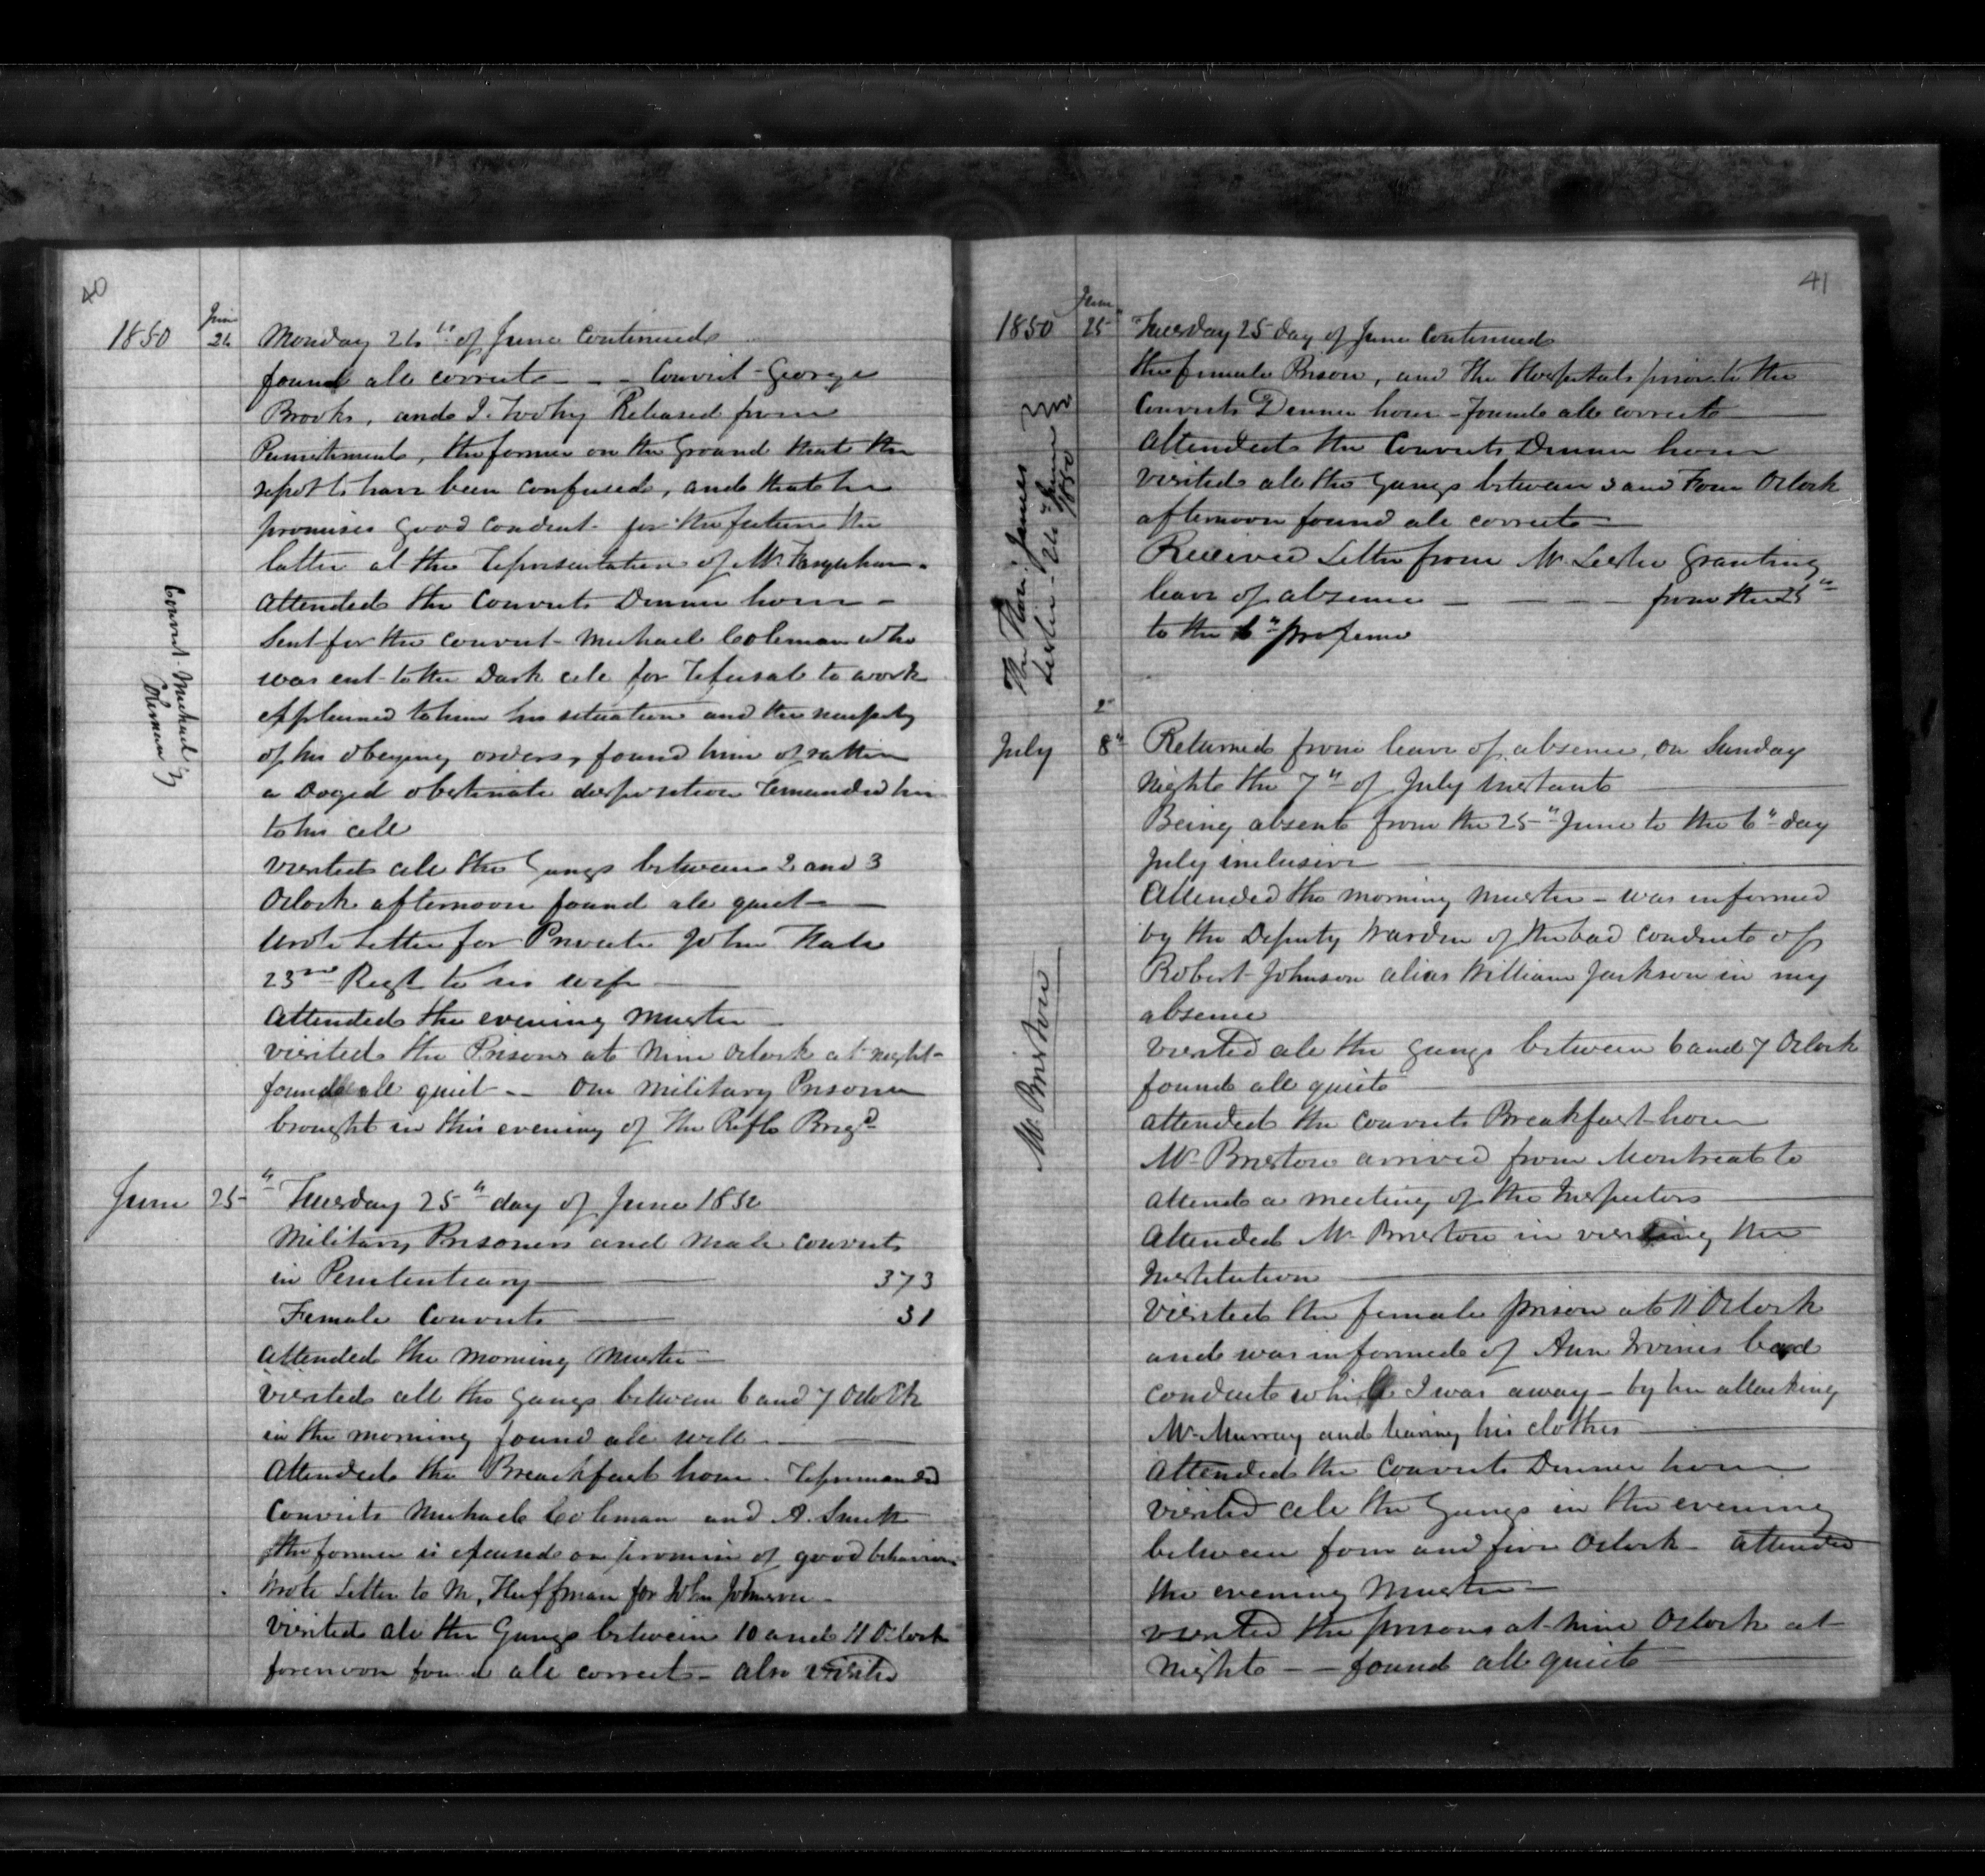 40
1850 June 24 Monday 24th of June Continued
found all correct – – Convict George
Brooks, and J. Toohy Released from
Punishment, the former on the ground that the
report to have been confused, and that he
promises good conduct for the future the
latter at the representation of Mr. Farquhar.
Attended the Convicts Dinner hour –
Sent for the convict Michael Coleman who
was ent to the Dark cell for refusal to work
explained to him his situation and the necessity
of his obeying orders, found him of rather
a Doged obstinate disposition remanded him
to his cell
Convict Michael
Coleman
visited all the Gangs between 2 and 3
Oclock afternoon found all quiet –
Wrote Letter for Private John
23rd Regt to his wife –
Attended the evening Muster –
visited the Prisons at Nine Oclock at night –
found all quiet – – One Military Prisoner
brought in this evening of the Rifle Brigd
June 25" Tuesday 25" day of June 1850
Military Prisoners and Male Convicts
in Penitentiary – 373
Female Convicts – 31
Attended the morning Muster –
visited all the Gangs between 6 and 7 Oclock
in the morning found all well –
Attended the Breackfast hour. reprimanded
Convicts Michael Coleman and A. Smith
the former is excused on promise of good behaviour
Wrote Letter to M, Huffman for John Johnson –
visited all the Gangs between 10 and 11 Oclock
forenoon found all correct – also visited
41
1850 June 25" Tuesday 25 day of June Continued
the female Prison, and the Hospitals prior to the
Convicts Dinner hour – found all correct –
attended the Convicts Dinner hour
visited all the Gangs between 3 and Four Oclock
afternoon found all correct –
Received Letter from Mr Leslie Granting
leave of absence – – – from the 25"
to the 6" proximo
The Hon. James
Leslie – 24" June
1850
July 8" Returned from leave of absence, on Sunday
night the 7" of July instant
Being absent from the 25" June to the 6" day
July inclusive –
Attended the morning muster – was informed
by the Deputy Warden of the bad conduct of
Robert Johnson alias William Jackson in my
absence
visited all the gangs between 6 and 7 Oclock
found all quiet
attended the convicts Breakfast hour
Mr Bristow
Mr Bristow arrived from Montreal to
attend a meeting of the Inspectors
Attended Mr Bristow in visiting the
Institution
Visited the female prison at 11 Oclock
and was informed of Ann Irvines bad
conduct while I was away – by her attacking
Mr Murray and tearing his clothes –
Attended the Convicts Dinner hour
visited all the Gangs in the evening
between four and five Oclock – attended
the evening Muster –
visited the prisons at nine Oclock at
night – – found all quiet